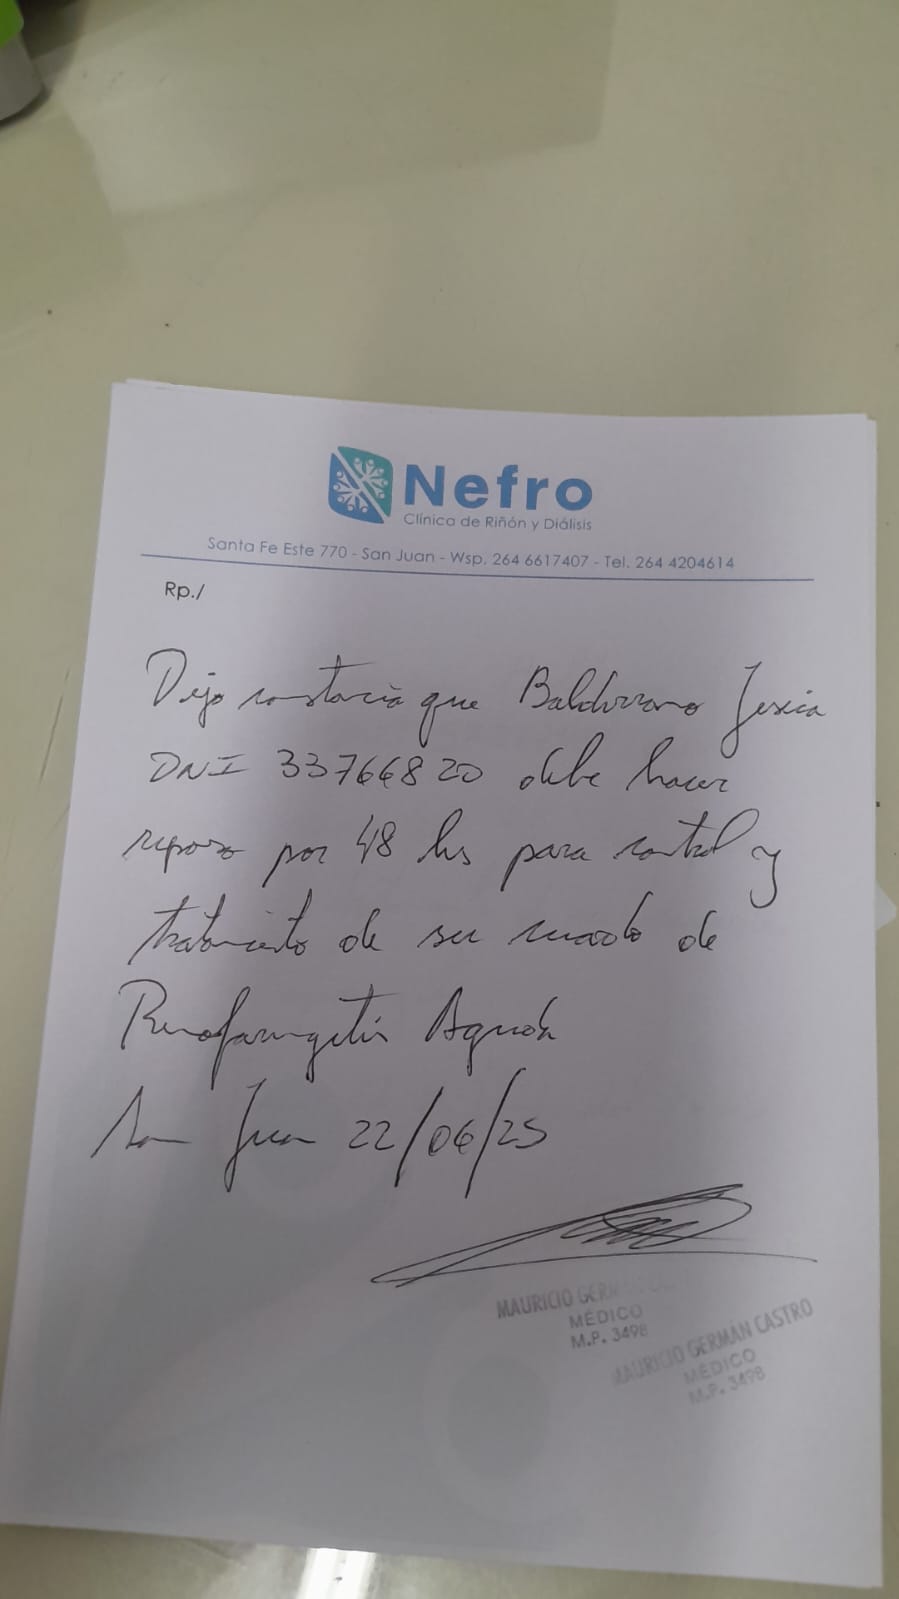 Nefro
Clínica de Riñón y Diálisis
Santa Fe Este 770 - San Juan - Wsp. 264 6617407 - Tel. 264 4204614
Rp./
Dejo constacia que
DNI 33766820 debe hacer
reposo por 48 hs para control y
tratamiento de su cuadro de
Rinofaringitis Aguda
San Juan 22/06/25
MAURICIO GERMÁN
MÉDICO
M.P. 3498
MAURICIO GERMÁN CASTRO
MÉDICO
M.P. 3498